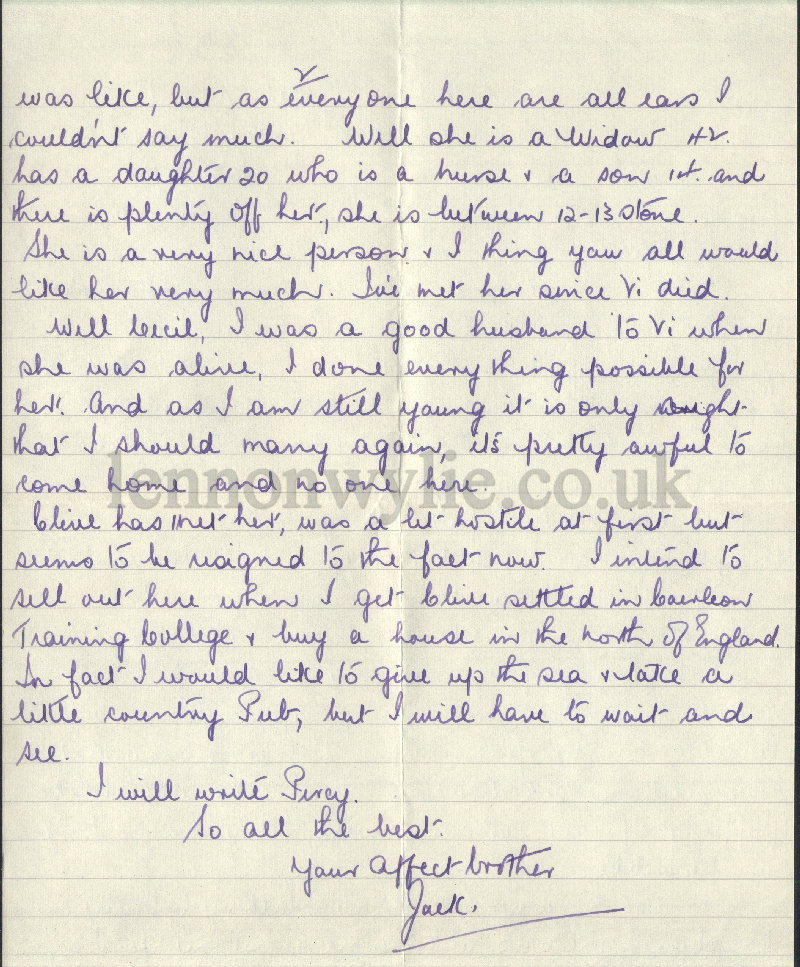 2
was like, but as everyone here are all ears I
couldn't say much. Well she is a Widow 42.
has a daughter 20 who is a nurse & a son 14. and
there is plenty off her, she is between 12-13 stone.
She is a very nice person & I thing you all would
like her very much. I've met her since Vi died.
Well Cecil, I was a good husband to Vi when
she was alive, I done everything possible for
her. And as I am still young it is only
that I should marry again, it's pretty awful to
come home and no one here.
lennonwylie.co.uk
Clive has met her, was a bit hostile at first but
seems to be resigned to the fact now. I intend to
sell out here when I get Clive settled in Caerleon
Training College & buy a house in the north of England.
In fact I would like to give up the sea & take a
little country Pub, but I will have to wait and
see.
I will write Percy.
So all the best.
Your affect brother
Jack.